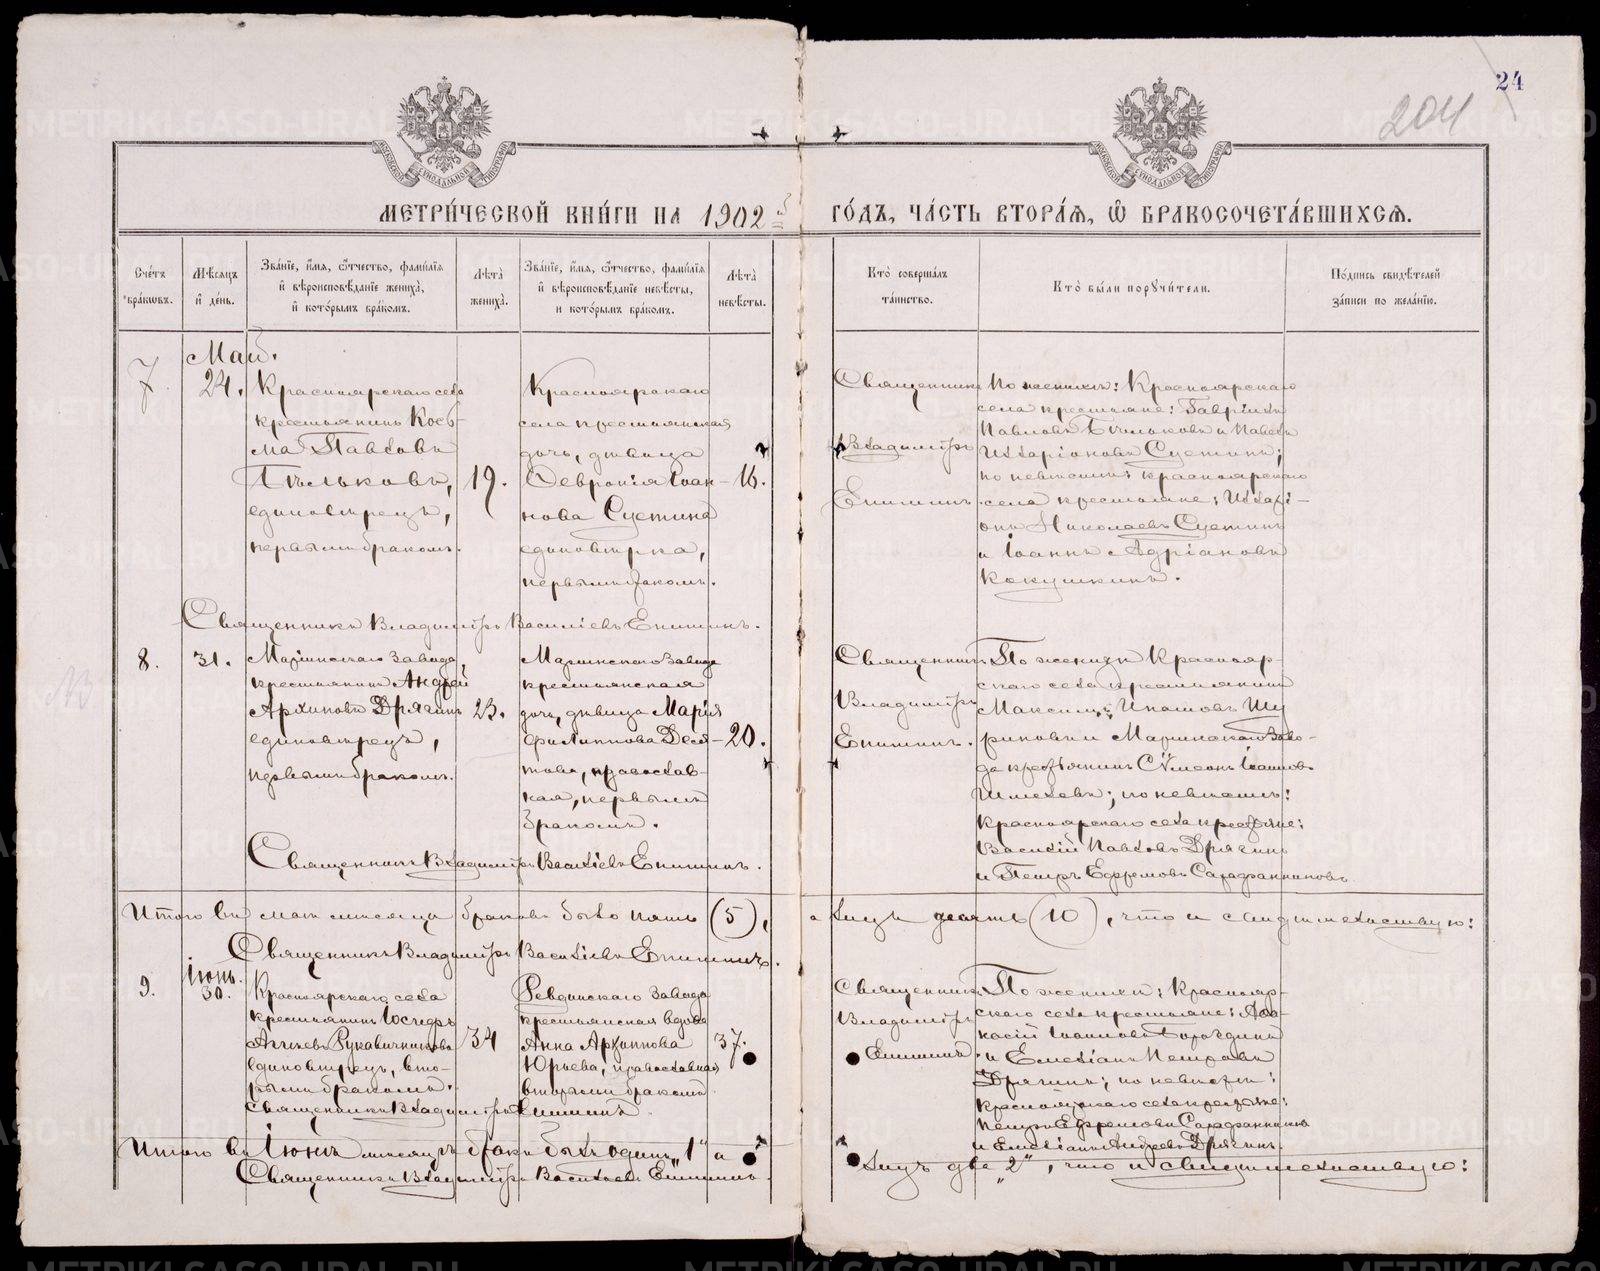 24
204
МЕТРИЧЕСКОЙ КНИГИ НА 1902 й
ГОДЪ, ЧАСТЬ ВТОРАЯ, Ѡ БРАКОСОЧЕТАВШИХСЯ.
Счетъ браковъ.
Мѣсяцъ и день.
Званіе, имя, отчество, фамилія
и вѣроисповѣданіе жениха,
и которымъ бракомъ.
Лѣта жениха.
Званіе, имя, отчество, фамилія
и вѣроисповѣданіе невѣсты,
и которымъ бракомъ.
Лѣта невѣсты.
Кто совершалъ
таинство.
Кто были поручители.
Подпись свидѣтелей
записи по желанію.
7.
Май.
24.
Красноярскаго села
крестьянинъ Козь-
ма Павловъ
Пѣльковъ,
единовѣрецъ,
первымъ бракомъ.
19.
Красноярскаго
села крестьянская
дочь, дѣвица
Февронія Іоан-
нова Суетина
единовѣрка,
первымъ бракомъ.
16.
Священникъ
Владиміръ
Епишинъ.
По женихѣ: Красноярскаго
села крестьяне: Гавріилъ
Павловъ Пѣльковъ и Павелъ
Илларіоновъ Суетинъ;
по невѣстѣ: красноярскаго
села крестьяне: Иллари-
онъ Николаевъ Суетинъ
и Іоаннъ Адріановъ
Кокушкинъ.
Священникъ Владиміръ Василіевъ Епишинъ.
8.
31.
Маріинскаго завода,
крестьянинъ Андрей
Архиповъ Дрягинъ
единовѣрецъ,
первымъ бракомъ.
23.
Маріинскаго завода
крестьянская
дочь, дѣвица Марія
Филиппова Деся-
това, православ-
ная, первымъ
бракомъ.
20.
Священникъ
Владиміръ
Епишинъ.
По женихѣ Краснояр-
скаго села крестьянинъ
Максимъ Ипатовъ
и Маріинскаго заво-
да крестьянинъ Сѵмеонъ Іоанновъ
Шмелевъ; по невѣстѣ:
Красноярскаго села крестьяне:
Василій Павловъ Дрягинъ
и Петръ Ефремовъ Сарафанниковъ.
Священникъ Владиміръ Василіевъ Епишинъ.
Итого въ маѣ мѣсяцѣ браковъ было пять (5),
а лицъ десять (10), что и свидѣтельствую:
Священникъ Владиміръ Василіевъ Епишинъ.
9.
Іюнь.
30.
Красноярскаго села
крестьянинъ Іосифъ
Рукавичниковъ
единовѣрецъ, вто-
рымъ бракомъ.
34
Ревдинскаго завода
крестьянская вдова
Анна Архиппова
Юрьева, православная
вторымъ бракомъ.
37.
Священникъ
Владиміръ
Епишинъ.
По женихѣ: Краснояр-
скаго села крестьяне: Афа-
насій Іоанновъ Бороздинъ
и Емеліанъ Петровъ
Дрягинъ; по невѣстѣ:
Красноярскаго села крестьяне:
Петръ Ефремовъ Сарафанниковъ
и Емеліанъ Андреевъ Дрягинъ.
Священникъ Владиміръ Епишинъ.
Итого въ Іюнѣ мѣсяцѣ бракъ былъ одинъ „1" а
лицъ две „2", что и свидѣтельствую:
Священникъ Владиміръ Василіевъ Епишинъ.
METRIKI.GASO-URAL.RU